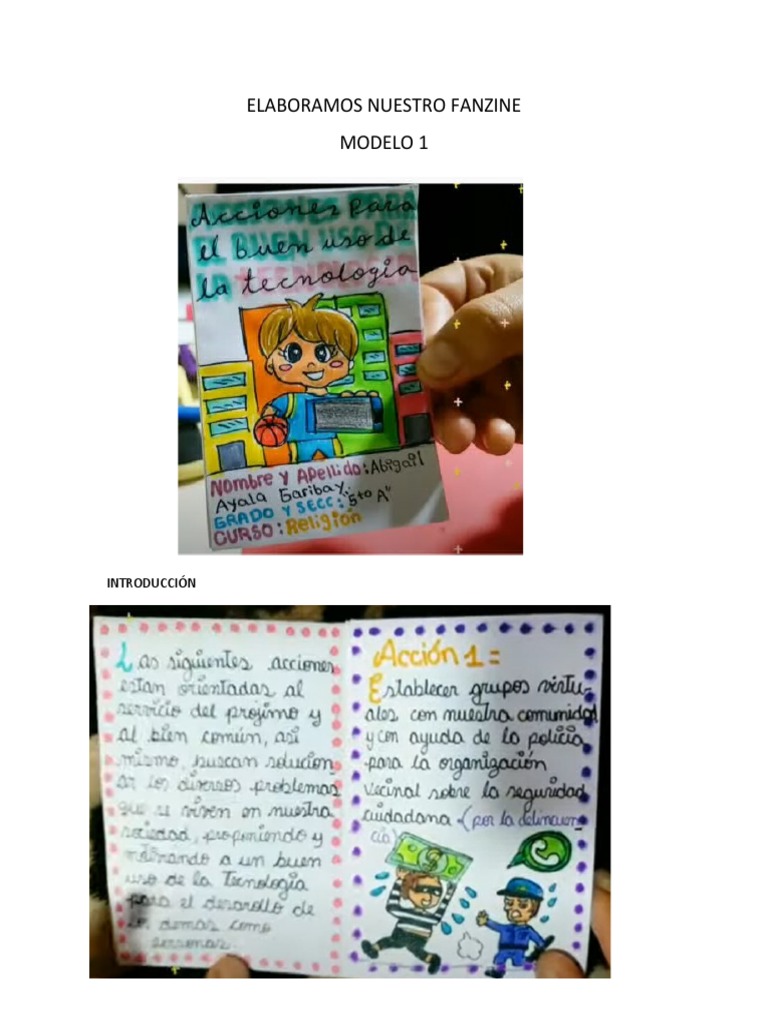 ELABORAMOS NUESTRO FANZINE
MODELO 1
Acciones para
el Buen uso de
la tecnología
Nombre y Apellido: Abigail
Ayala Garibay.
GRADO Y SECC: 5to A"
CURSO: Religión
INTRODUCCIÓN
Las siguientes acciones
estan orientadas al
servicio del projimo y
al bien común, asi
mismo, buscan solucion
ar los diversos problemas
que se viven en nuestra
sociedad, proponiendo y
a un buen
uso de la Tecnología
para el desarollo de
los demas como
personas.
Acción 1 =
Establecer grupos virtu-
ales con nuestra comunidad
y con ayuda de la policia
para la organización
vecinal sobre la seguridad
ciudadana (por la delincuen
cia)